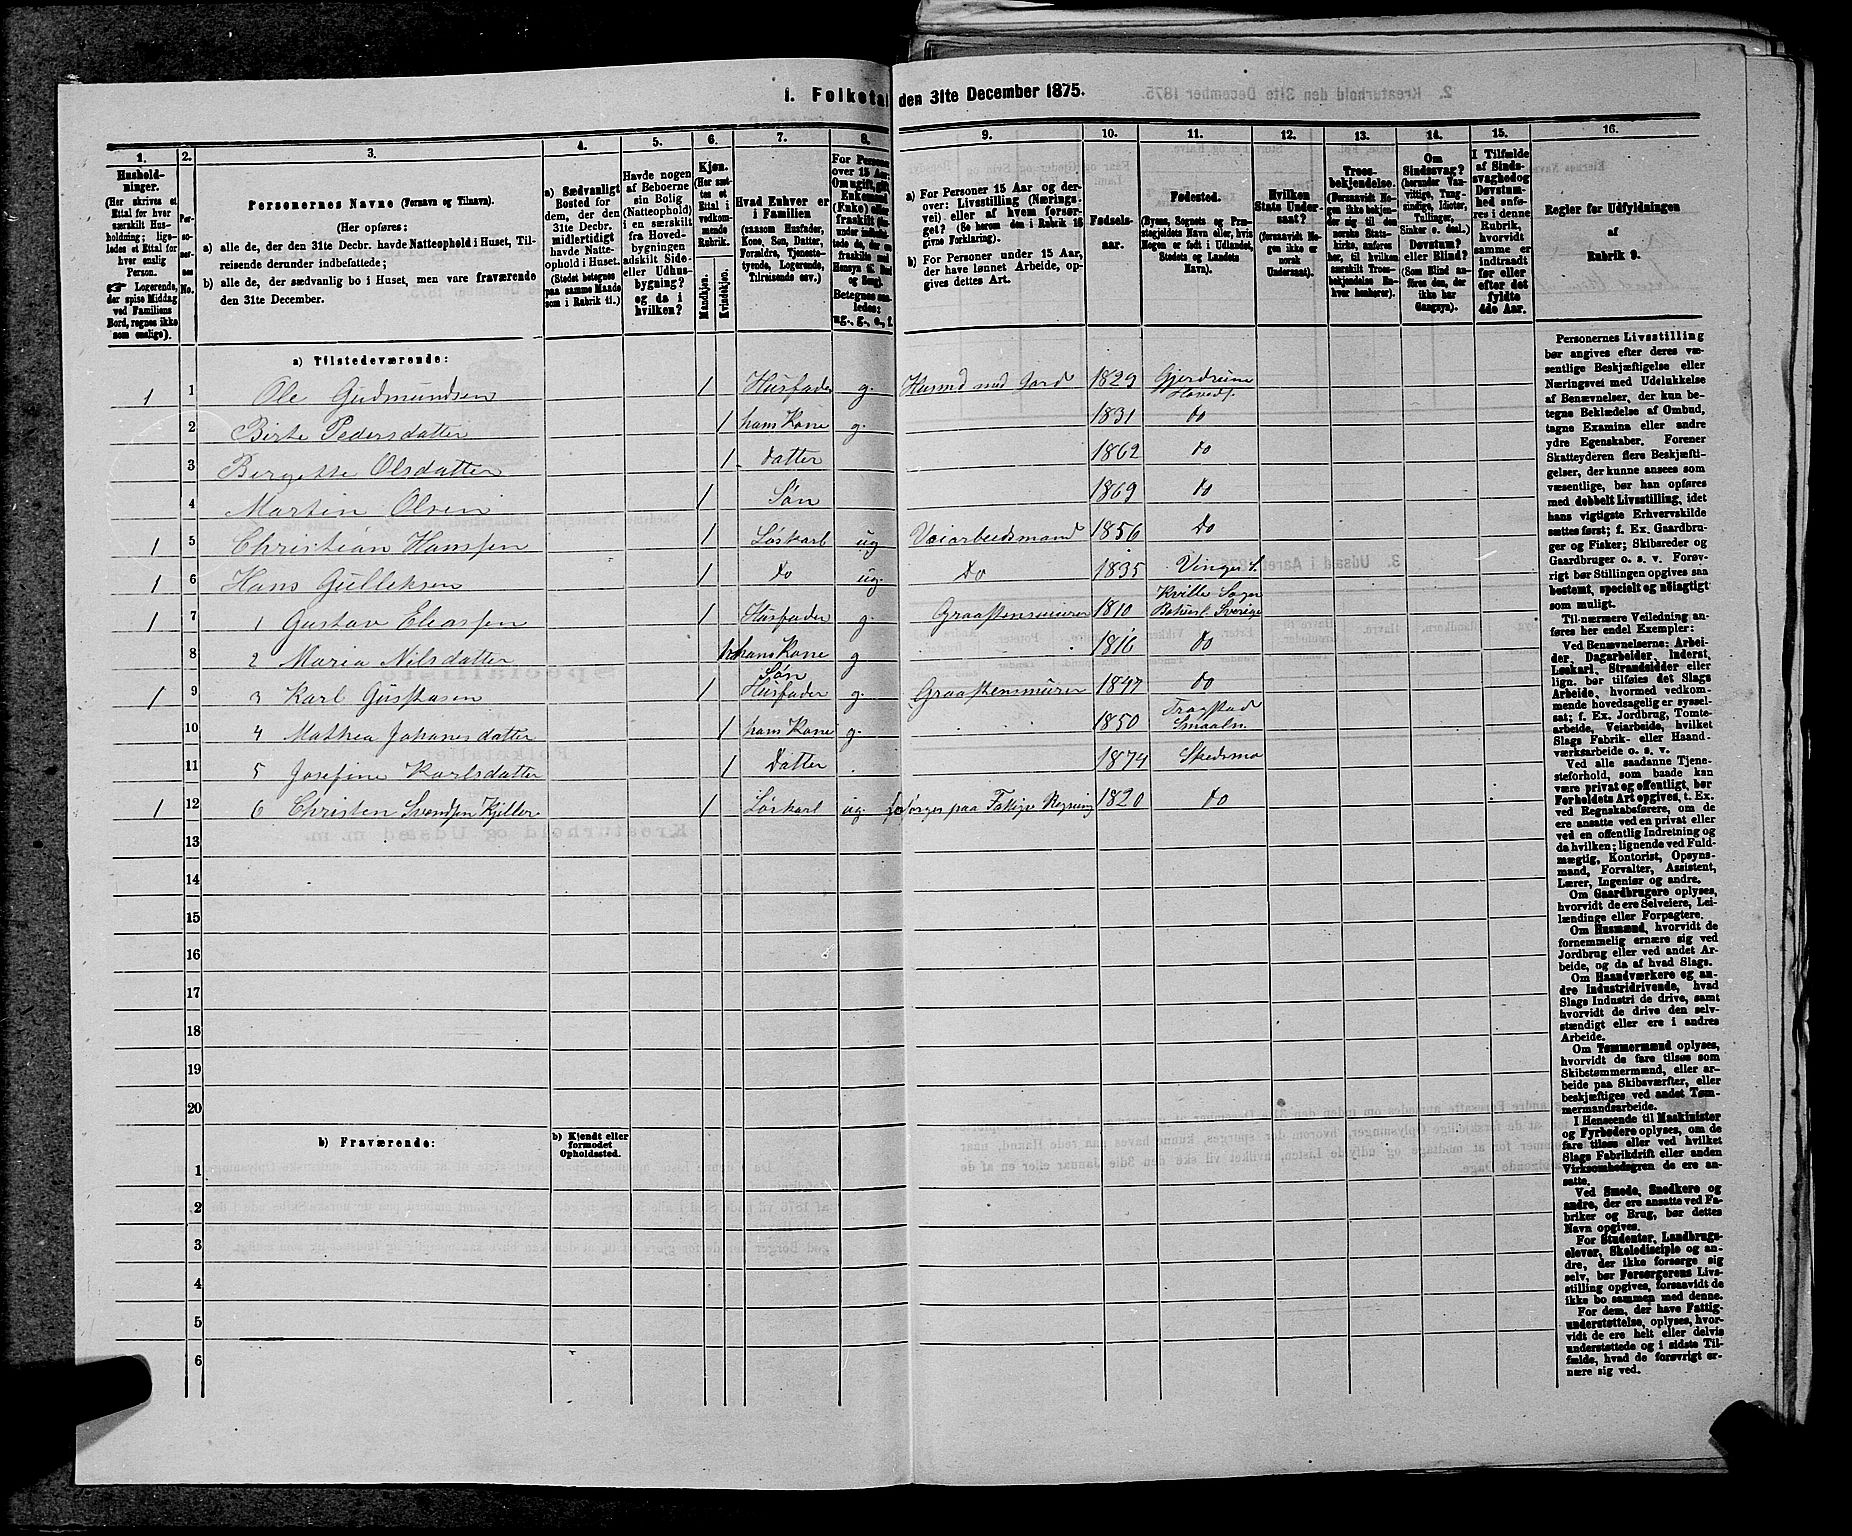 1. Folketal den 31te December 1875.
1. 2. 3. 4. 5. 6. 7. 8. 9. 10. 11. 12. 13. 14. 15. 16.
Hushold-
ninger.
(Her skrives et
Ettal for hver
særskilt Hus-
holdning; lige-
ledes et Ettal for
hver enslig
Person.
☞ Logerende,
der spise Middag
ved Familiens
Bord, regnes ikke
som enslige).
Per-
so-
ner-
nes
No.
Personernes Navne (Fornavn og Tilnavn).
(Her opføres:
a) alle de, der den 31te Decbr. havde Natteophold i Huset, Til-
reisende derunder indbefattede;
b) alle de, der sædvanlig bo i Huset, men vare fraværende
den 31te December.
a) Sædvanligt
Bosted for
dem, der den
31te Decbr.
midlertidigt
havde Natte-
ophold i Huset.
(Stedet betegnes
paa samme Maade
som i Rubrik 11.)
Havde nogen
af Beboerne
sin Bolig
(Natteophold)
i en særskilt
fra Hoved-
bygningen
adskilt Side-
eller Udhus-
bygning?
og da i
hvilken?
Kjøn.
(Her sæt-
tes et
Ettal i
vedkom-
mende
Rubrik.
Mandkjøn.
Kvindekjøn.
Hvad Enhver er
i Familien
(saasom Husfader,
Kone, Søn, Datter,
Forældre, Tjeneste-
tyende, Logerende,
Tilreisende osv.)
For Personer
over 15 Aar:
Om ugift, gift,
Enkemand
(Enke) eller
fraskilt
Betegnes saa-
ledes:
ug., g., e., f.
a) For Personer 15 Aar og der-
over: Livsstilling (Nærings-
vei) eller af hvem forsør-
get. (Se herom den i Rubrik 16
givne Forklaring).
b) For Personer under 15 Aar,
der have lønnet Arbeide, op-
gives dettes Art.
Fødsels-
aar.
Fødested.
(Byens, Sognets og Præ-
stegjeldets Navn eller, hvis
Nogen er født i Udlandet,
Stedets og Landets
Navn).
Hvilken
Stats Under-
saat?
(forsaavidt No-
gen ikke er
norsk
Undersaat).
Troes-
bekjendelse.
(Forsaavidt No-
gen ikke bekjen-
der sig til den
norske Stats-
kirke, anføres
her, til hvilken
særskilt Troes-
bekjendelse En-
hver henhører).
Om
Sindssvag?
(herunder Van-
vittige, Tung-
sindige, Idioter,
Tullinger,
Sinker o. desl.)
Døvstum?
eller Blind?
(Som Blind an-
føres den, der
ikke har
Gangsyn).
I Tilfælde
af Sinds-
svaghed og
Døvstum-
hed anfø-
res i denne
Rubrik,
hvorvidt
samme er
indtraadt
før eller
efter det
fyldte
4de Aar.
Regler for Udfyldningen
af
Rubrik 9.
a) Tilstedeværende:
1 1 Ole Gudmundsen 1 Husfader g. Husmd med Jord 1829 Gjerdrum Hoveds.
2 Birte Pedersdatter 1 hans Kone g. 1831 do
3 Bergitte Olsdatter 1 datter 1862 do
4 Martin Olsen 1 Søn 1869 do
1 5 Christian Hansen 1 Løskarl ug Veiarbeidsmand 1856 Do
1 6 Hans Gulleksen 1 Do ug. Do 1835 Vinger S.
1 7 1 Gustav Eliassen 1 Husfader g. Graastensmurer 1810 Kville Sogn Bohusl. Sverige
8 2 Maria Nilsdatter 1 hans Kone g 1816 do
1 9 3 Karl Gustasen 1 Søn Husfader g. Graastensmurer 1847 do
10 4 Mathea Johanesdatter 1 hans Kone g. 1850 Trøgstad Smaaln.
11 5 Josefine Karlsdatter 1 Datter 1874 Skedsmo
1 12 6 Christen Svendsen Kjeller 1 Løskarl ug. forsørges paa Fattiges Regning 1820 do
13
14
15
16
17
18
19
20
b) Fraværende:
b) Kjendt eller
formodet
Opholdssted.
1
2
3
4
5
6
Personernes Livsstilling
bør angives efter deres væ-
sentlige Beskjæftigelse eller
Næringsvei med Udelukkelse
af Benævnelser, der kun be-
tegne Beklædelse af Ombud,
tagne Examina eller andre
ydre Egenskaber. Forener
Skatteyderen flere Beskjæfti-
gelser, der kunne ansees som
væsentlige, bør han opføres
med dobbelt Livsstilling, idet
hans vigtigste Erhvervskilde
sættes først; f. Ex. Gaardbru-
ger og Fisker; Skibsreder og
Gaardbruger o. s. v. Forøv-
rigt bør Stillingen opgives saa
bestemt, specielt og nøiagtigt
som muligt.
Til nærmere Veiledning an-
føres her endel Exempler:
Ved Benævnelserne: Arbei-
der, Dagarbeider, Inderst,
Løskarl, Strandsidder eller
lign. bør tilføies det Slags
Arbeide, hvormed vedkom-
mende hovedsagelig er syssel-
sat; f. Ex. Jordbrug, Tomte-
arbeide, Veiarbeide, hvilket
Slags Fabrik- eller Haand-
værksarbeide o. s. v.
Ved alle saadanne Tjene-
steforhold, som baade kan
være privat og offentligt, bør
Forholdets Art opgives, t. Ex.
ved Regnskabsførere, om de
ere ansatte ved en privat eller
ved en offentlig Indretning og
da hvilken; lignende ved Fuld-
mægtig, Kontorist, Opsyns-
mand, Forvalter, Assistent,
Lærer, Ingeniør og andre.
Om Gaardbrugere oplyses,
hvorvidt de ere Selveiere, Lei-
lændinge eller Forpagtere.
Om Husmænd, hvorvidt de
fornemmelig ernære sig ved
Jordbrug eller ved andet Ar-
beide, og da af hvad Slags.
Om Haandværkere og an-
dre Industridrivende, hvad
Slags Industri de drive, samt
hvorvidt de drive den selv-
stændigt eller ere i andres
Arbeide.
Om Tømmermænd oplyses,
hvorvidt de fare tilsøs som
Skibstømmermænd, eller ar-
beide paa Skibsværfter, eller
beskjæftiges ved andet Tøm-
mermandsarbeide.
I Henseende til Maskinister
og Fyrbødere oplyses, om de
fare tilsøs eller ved hvilket
Slags Fabrikdrift eller anden
Virksomhedsgren de ere an-
satte.
Ved Smede, Snedkere og
andre, der ere ansatte ved Fa-
briker og Brug, bør dettes
Navn opgives.
For Studenter, Landbrugs-
elever, Skoledisciple og an-
dre, der ikke forsørge sig
selv, bør Forsørgerens Livs-
stilling opgives, forsaavidt de
ikke bo sammen med denne.
For dem, der have Fattig-
understøttelse, oplyses, hvor-
vidt de ere helt eller delvis
understøttede og i sidste Til-
fælde, hvad de forøvrigt er-
nære sig ved.